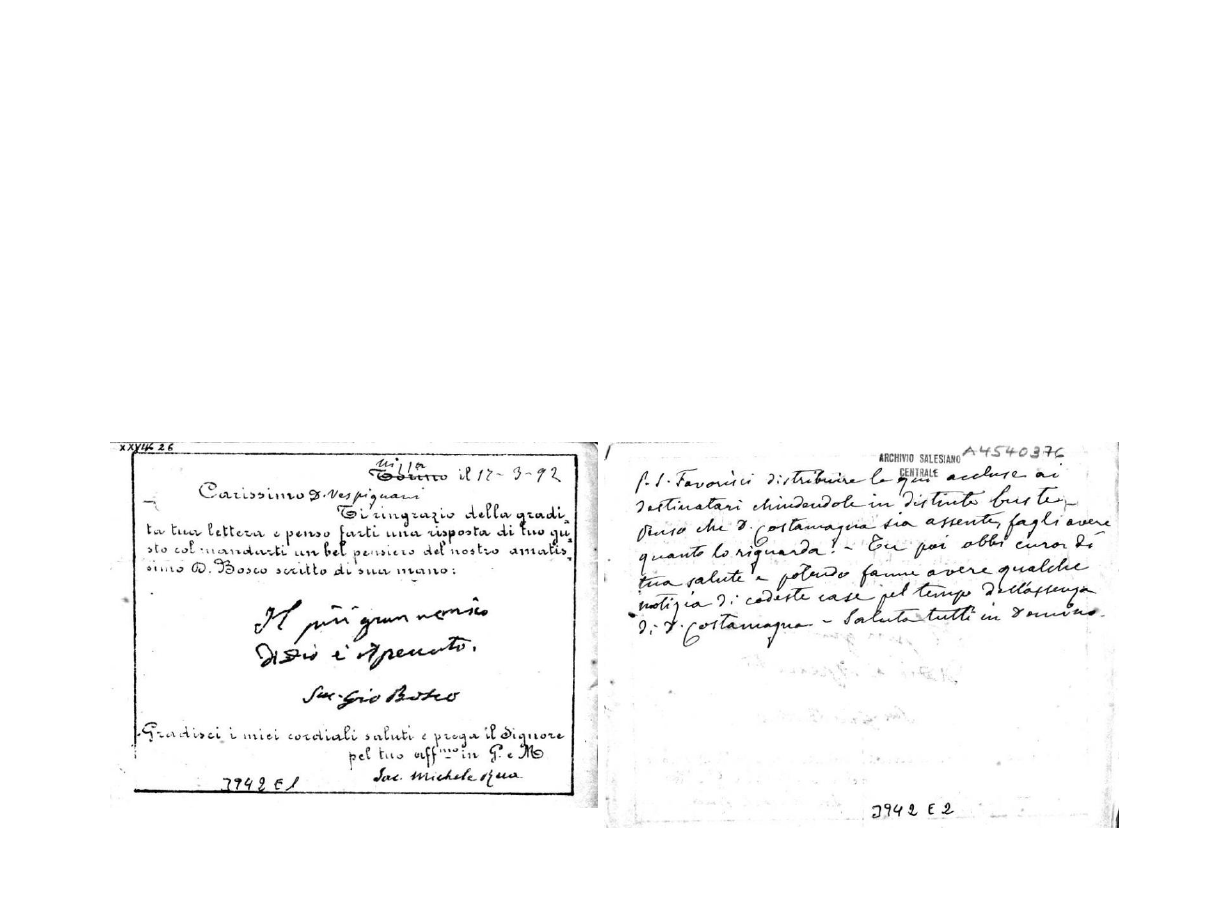 XXVII 26
Nizza
Torino il 17-3-92
Carissimo D. Vespignani
Ti ringrazio della gradi-
ta tua lettera e penso farti una risposta di tuo gu-
sto col mandarti un bel pensiero del nostro amatis-
simo D. Bosco scritto di sua mano:
Il più gran nemico
di Dio è il peccato.
Sac. Gio Bosco
Gradisci i miei cordiali saluti e prega il Signore
pel tuo aff.mo in G. e M
Sac. Michele Rua
3942 E 1
ARCHIVIO SALESIANO
CENTRALE
A4540376
P.S. Favorisci distribuire le qui accluse ai
destinatari chiudendole in distinte buste,
Penso che D. Costamagna sia assente, fagli avere
quanto lo riguarda. - Tu poi abbi cura di
tua salute e potendo fanne avere qualche
notizia di codeste case pel tempo dell'assenza
di D. Costamagna - Saluta tutti in Domino.
3942 E 2